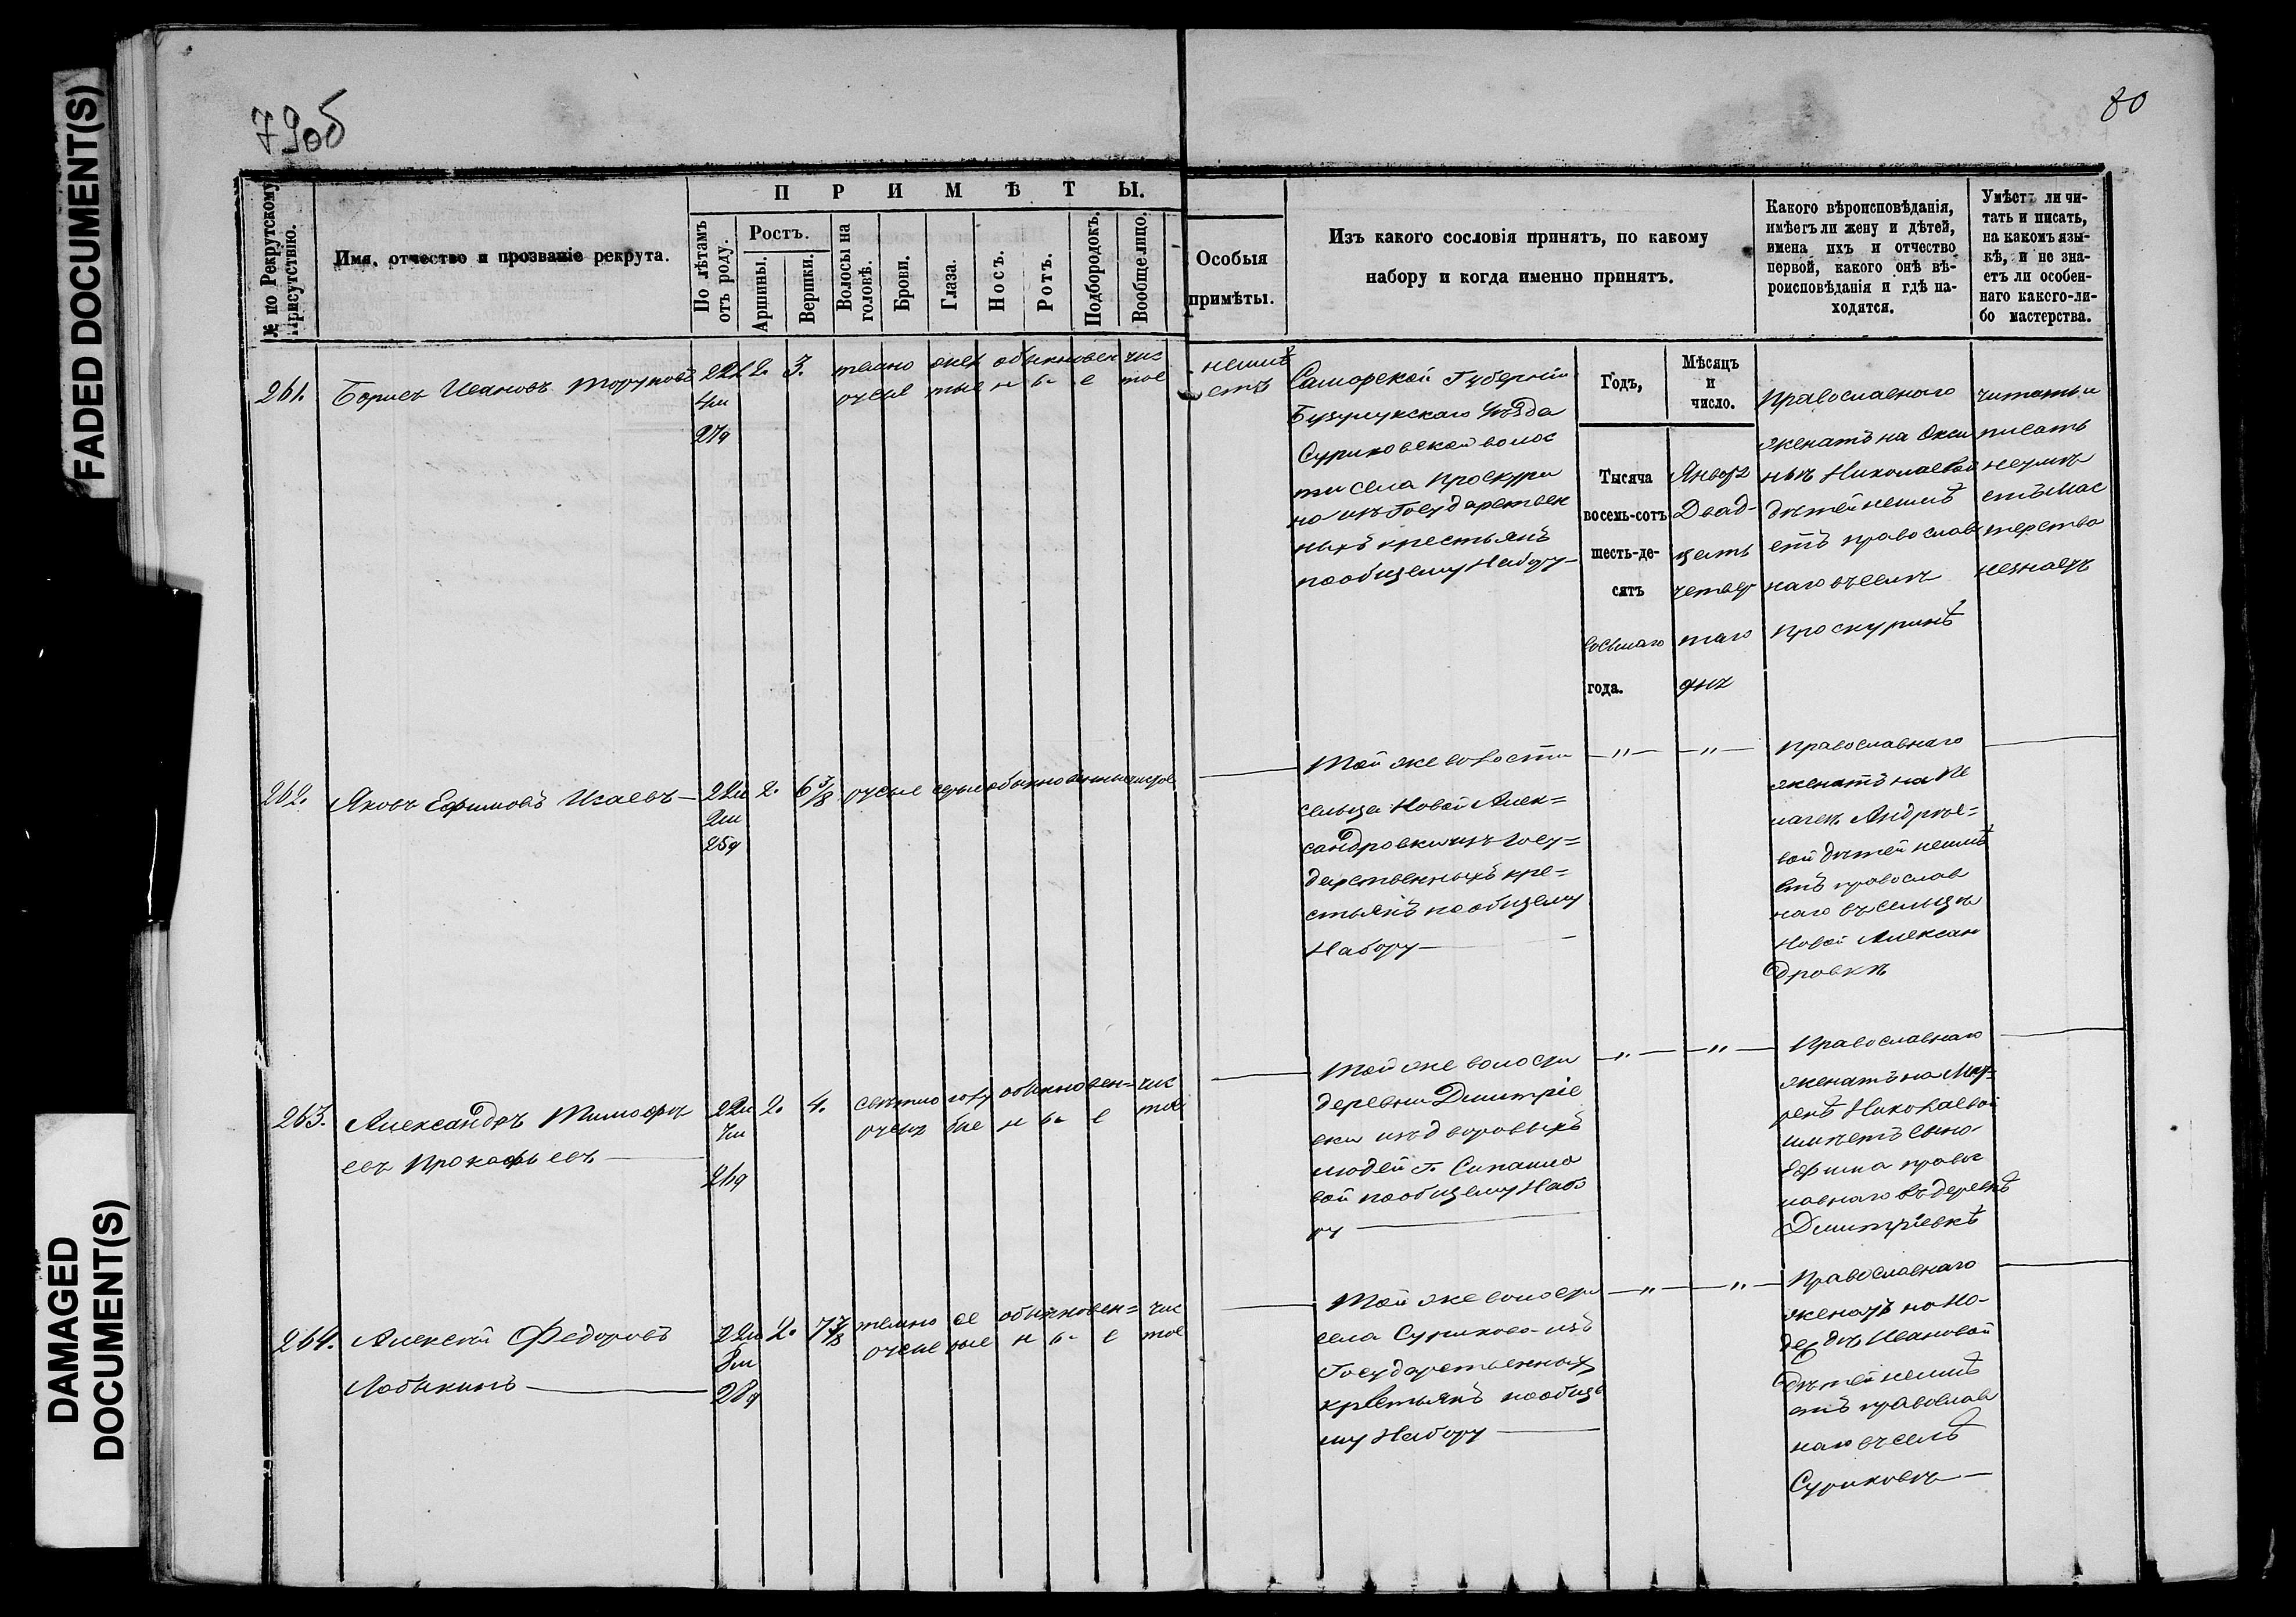 FADED DOCUMENT(S)
DAMAGED
DOCUMENT(S)
79об
80
№ по Рекрутскому
Присутствію.
Имя, отчество и прозваніе рекрута.
ПРИМѢТЫ.
По лѣтамъ
отъ роду.
Ростъ.
Аршины.
Вершки.
Волосы на
головѣ.
Брови.
Глаза.
Носъ.
Ротъ.
Подбородокъ.
Вообще лицо.
Особыя
примѣты.
Изъ какого сословія принятъ, по какому
набору и когда именно принятъ.
Какого вѣроисповѣданія,
имѣетъ ли жену и дѣтей,
имена ихъ и отчество
первой, какого онѣ вѣ-
роисповѣданія и гдѣ на-
ходятся.
Умѣетъ ли чи-
тать и писать,
на какомъ язы-
кѣ, и не зна-
етъ ли особен-
наго какого-ли-
бо мастерства.
261.
Борисъ Ивановъ
22л 2. 3. темно обыкновен чис
4м русые н ы е тое
27д
неимѣ
етъ
Самарской Губерніи
Бузулукскаго Уѣзда
Суриковской волос
ти села Проскури
но изъ Государствен
ныхъ крестьянъ
пообщему Набору
Годъ,
Тысяча
восемь-сотъ
шесть-де-
сятъ
восьмаго
года.
Мѣсяцъ
и
число.
Января
Двад-
цать
четвер
таго
дня
Православнаго
женатъ на Окси
ньѣ Николаевой
дѣтей неимѣ
етъ православ
наго въ селѣ
Проскуринѣ
читать и
писать
неумѣ
етъ мас
терства
незнаетъ
262.
Яковъ Ефимовъ Исаевъ
22л 2. 6 3/8 русые серые обыкновенные чистое
2м
25д
Той же волости
сельца Новой Алек=
сандровки изъ Госу=
дарственныхъ кре=
стьянъ пообщему
Набору
" "
Православнаго
женатъ на Пе
лагеѣ Андрѣе=
вой дѣтей неимѣ
етъ православ
наго въ сельцѣ
Новой Алексан
дровкѣ
263.
Александръ Тимофѣ
евъ Прокофьевъ
22л 2. 4. свѣтло голу обыкновен= чис
7м русые бые н ы е тое
21д
Той же волости
деревни Дмитріе
вки изъ дворовыхъ
людей г.
вой пообщему Набо
ру
" "
Православнаго
женатъ на Мат
ренѣ Николаевой
имѣетъ сына
Ефима правос
лавнаго въ деревнѣ
Дмитріевкѣ
264.
Алексѣй Федоровъ
Лобыкинъ
22л 2. 7 7/8 темно се обыкновен= чис
8м русые рые н ы е тое
28д
Той же волости
села Суриково изъ
Государственныхъ
крестьянъ пообще
му Набору
" "
Православнаго
женатъ на На-
деждѣ Ивановой
дѣтей неимѣ
етъ православ
наго въ селѣ
Суриковѣ